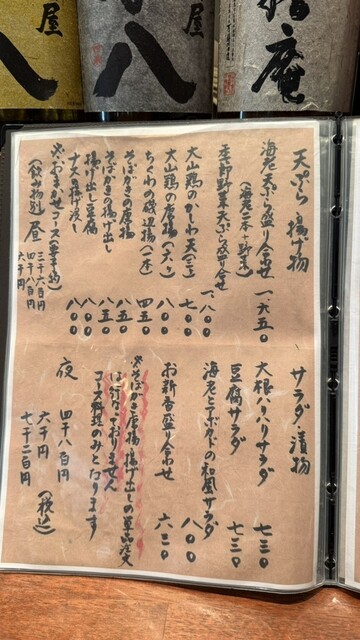 屋
八
屋
八
庵
天ぷら 揚げ物
海老天ぷら盛り合わせ 一、六五〇
(海老二本+野菜)
季節野菜天ぷら盛り合わせ 一、一〇〇
大山鶏のかしわ天(五ヶ) 七〇〇
大山鶏の唐揚(六ヶ) 八〇〇
ちくわの磯辺揚(一本) 四五〇
そばがきの唐揚 八五〇
そばがきの揚げ出し 八五〇
揚げ出し豆腐 八〇〇
ナス の揚げ浸し 八〇〇
※おまかせコース(要予約)
(飲み物別) 昼 三千六百円
四千八百円
六千円
サラダ・漬物
大根ハリハリサラダ 七三〇
豆腐サラダ 七三〇
海老とアボカドの和風サラダ 八〇〇
お新香盛り合わせ 六三〇
※そばがき唐揚 揚げ出しの単品注文
は行なっておりません
コース料理のみとなります
夜 四千八百円
六千円
七千二百円 (税込)